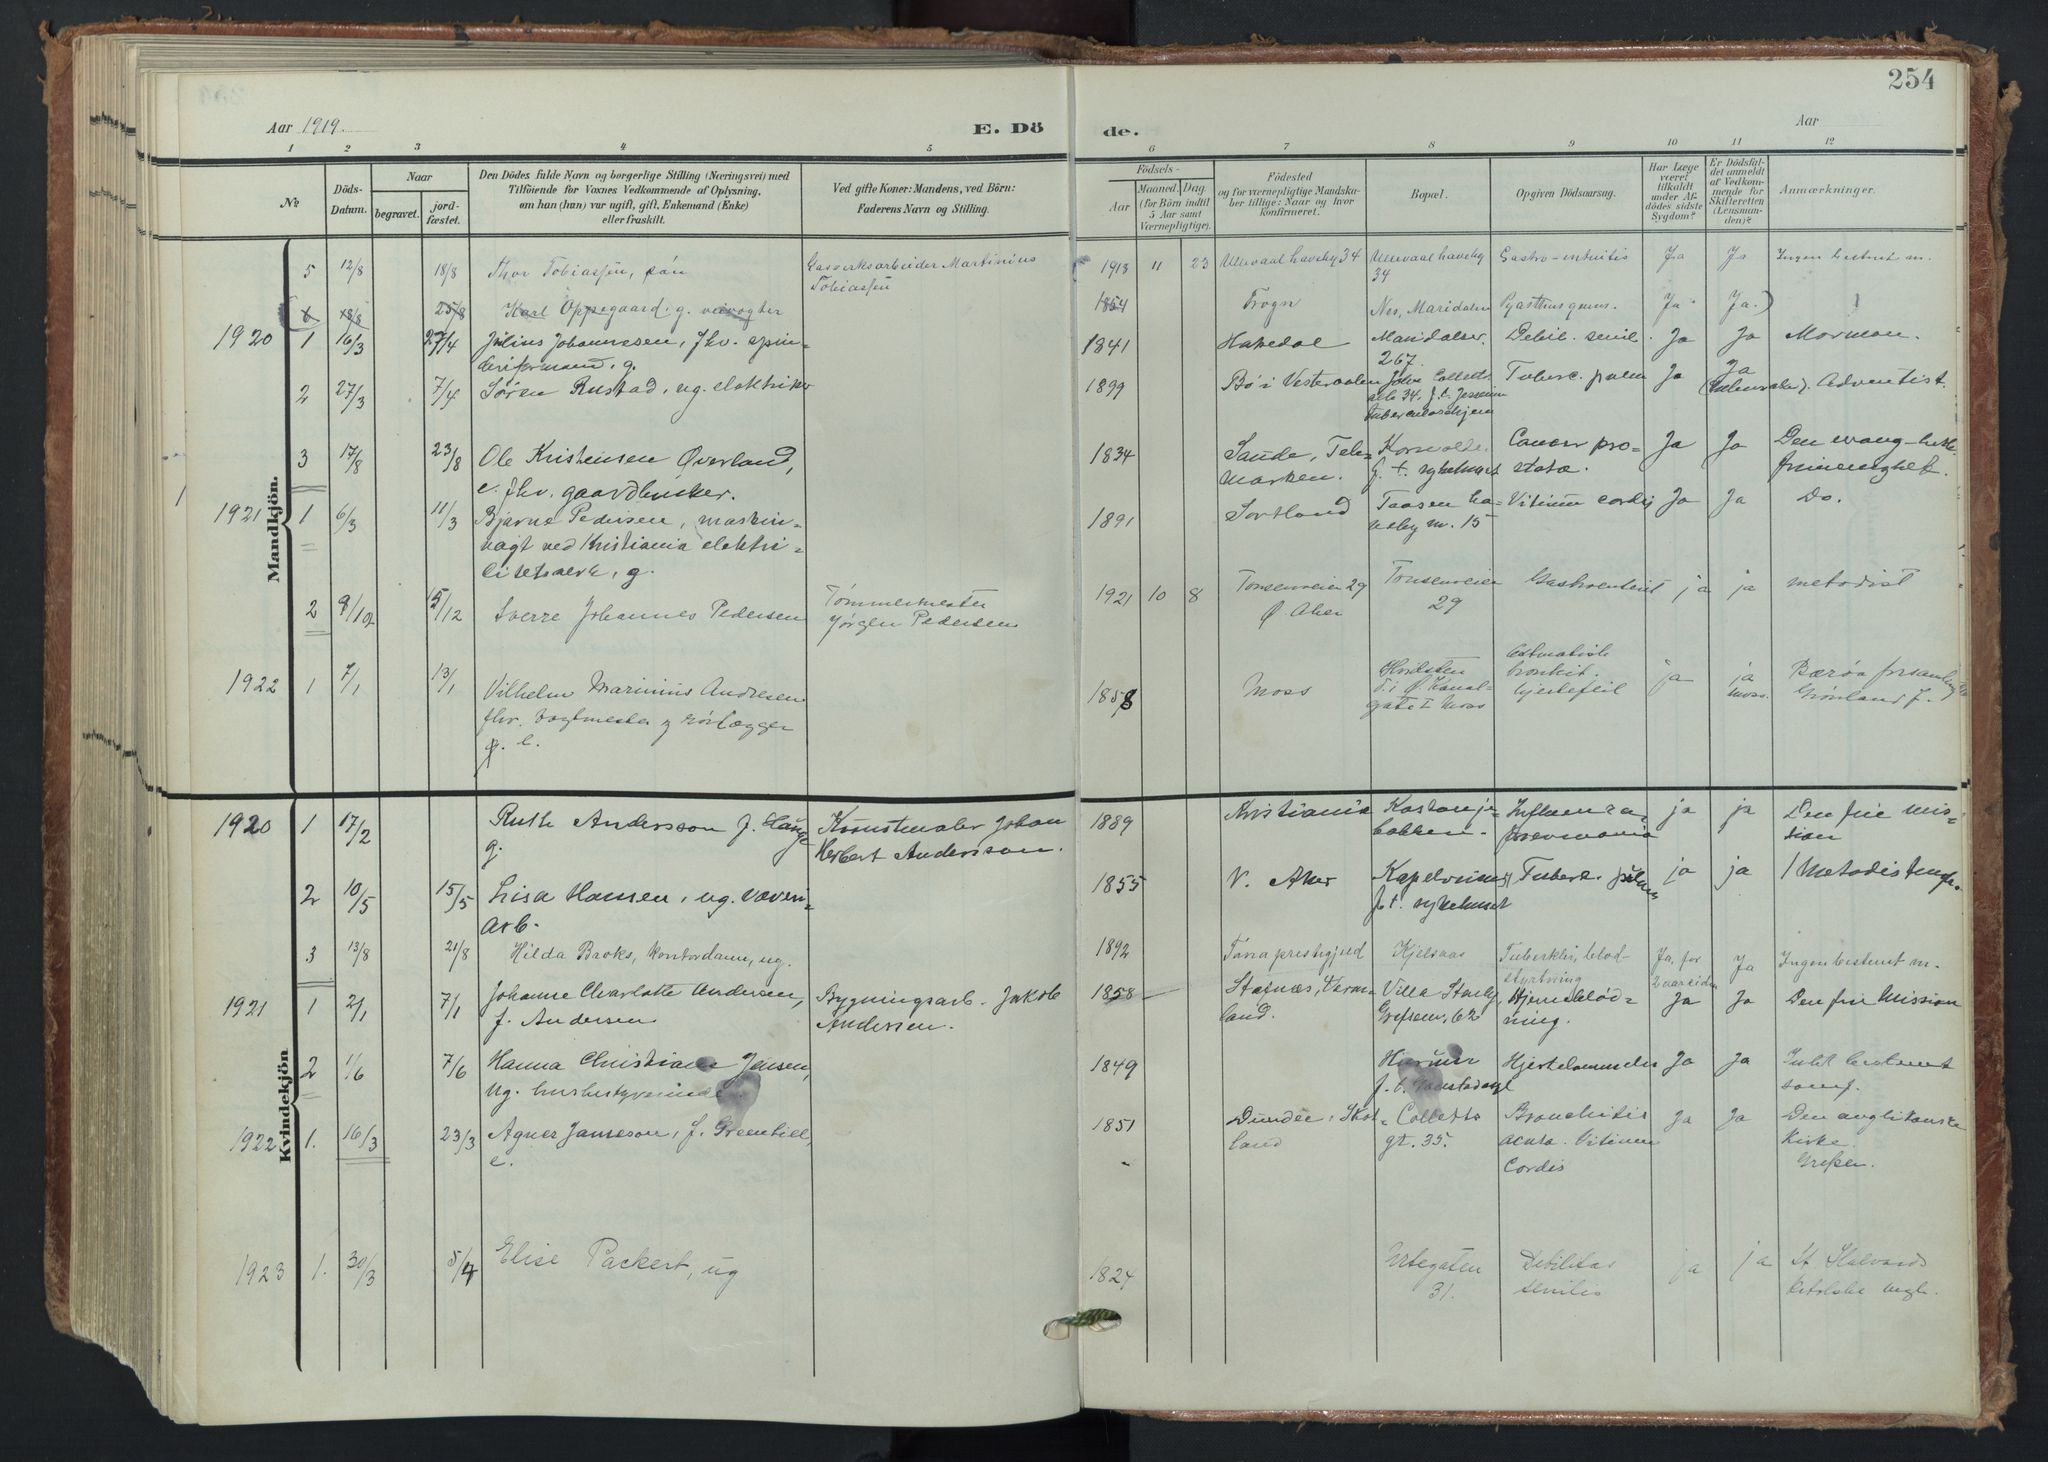 254
Aar 1919.
E. Döde.
Aar
1 2 3 4 5 6 7 8 9 10 11 12
No
Döds-Datum.
Naar
begravet.
jordfæstet.
Den Dödes fulde Navn og borgerlige Stilling (Næringsvei) med
Tilföiende for Voxnes Vedkommende af Oplysning,
om han (hun) var ugift, gift, Enkemand (Enke)
eller fraskilt.
Ved gifte Koner: Mandens, ved Börn:
Faderens Navn og Stilling.
Födsels-
Aar
Maaned. Dag.
(for Börn indtil
5 Aar samt
Værnepligtige).
Födested
og for værnepligtige Mandska-
ber tillige: Naar og hvor
konfirmeret.
Bopæl.
Opgiven Dödsaarsag.
Har Læge
været
tilkaldt
under Af-
dödes sidste
Sygdom?
Er Dödsfal-
det anmeldt
af Vedkom-
mende for
Skifteretten
(Lensman-
den)?
Anmærkninger.
Mandkjön.
5 12/8 18/8 Thor Tobiassen, søn Gasverksarbeider Martinius 1913 11 23 Ullevaal haveby 34 Ullevaal haveby Gastro-enteritis Ja Ja Ingen bestemt m.
Tobiassen 34
6 18/8 25/8 Karl Oppegaard, g. veivogter 1854 Frogn Nes, Maridalen Ja Ja.)
1920 1 16/3 27/4 Julius Johannesen, fhv. spin- 1841 Hakedal Maridalsv. Debil. senil. Ja Ja Mormon.
deriformand, g. 267
2 27/3 7/4 Søren Rustad, ug. elektriker 1899 Bø i Vesteraalen Colletts Tuberc. pulm Ja Ja Adventist.
alle 34, f.t.
3 17/8 23/8 Ole Kristensen Øverland, 1834 Sande, Tele- Cancer pro- Ja Ja Den evang-luth.
e. fhv. gaardbruker. marken. f. t. sykehuset stata. frimenighet.
1921 1 6/3 11/3 Bjarne Pedersen, maskin- 1891 Sortland Taasen ha- Vitium cordis Ja Ja Do.
vagt ved Kristiania elektri- veby nr. 15
citetsverk, g.
2 9/12 15/12 Sverre Johannes Pedersen Tømmermester 1921 10 8 Tonsenveien 29 Tonsenveien Gastroenterit ja ja metodist
Jørgen Pedersen Ø. Aker 29
1922 1 7/1 13/1 Vilhelm Marinius Andresen 1858 Moss Hvidsten bronkit. ja ja
fhv. vagtmester og rørlægger gate I Moss hjertefeil moss. Grønland 7.
g. e.
Kvindekjön
1920 1 17/2 Ruth Andersson f. Hauge Kunstmaler Johan 1889 Kristiania Kastanje- Influenza, ja ja Den frie mis-
g. Herbert Andersson. bakken. pneumonia sion
2 10/5 15/5 Lisa Hansen, ug. væveri- 1855 V. Aker Tuberk. pulm ja ja Metodistmgh.
arb. f.t. sykehuset
3 13/8 21/8 Hilda Broks, kontordame, ug. 1892 Tana prestegjeld Kjelsaas Tuberkler, blod- Ja, for Ja Ingen bestemt m.
styrtning 2 aar siden
1921 1 2/1 7/1 Johanne Charlotte Andersen, Bygningsarb. Jakob 1858 Stafnæs, Verm- Villa Hjerneblød- Ja Ja Den frie Mission
f. Andersen Andersen. land. Grefsenv. 62 ning.
2 1/6 7/6 Hanna Christiane Jensen, 1849 Hjertelammelse Ja Ja Intet bestemt
ug. husbestyrerinde. f.t. samf.
1922 1. 16/3 23/3 Agnes Jameson, f. Greenhill, 1851 Dundee, Skot- Colletts Bronchitis Ja Ja Den anglikanske
e. land gt. 35. acuta. Vitium Kirke.
Cordis
1923 1. 30/3 5/4 Elise Packert, ug 1824 Urtegaten Debilitas ja ja St Halvards
31. senilis katolske mgh.